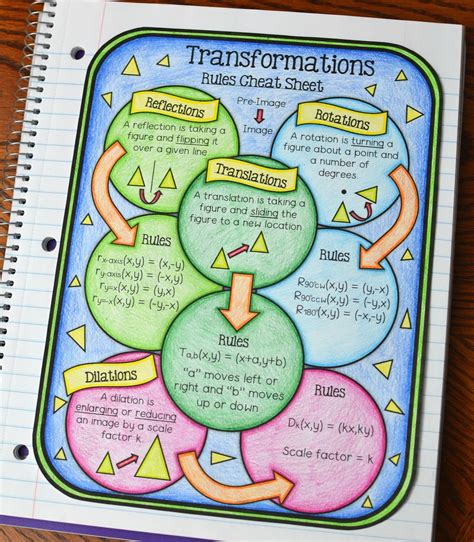 Transformations
Rules Cheat Sheet
Pre-Image
Image
Reflections
A reflection is taking a
figure and flipping it
over a given line
Rotations
A rotation is turning a
figure about a point and
a number of
degrees.
Translations
A translation is taking a
figure and sliding the
figure to a new location
Rules
rx-axis(x,y) = (x,-y)
ry-axis(x,y) = (-x,y)
ry=x(x,y) = (y,x)
ry=-x(x,y) = (-y,-x)
Rules
R90°cw(x,y) = (y,-x)
R90°ccw(x,y) = (-y,x)
R180°(x,y) = (-x,-y)
Rules
Ta,b(x,y) = (x+a,y+b)
"a" moves left or
right and "b" moves
up or down
Dilations
A dilation is
enlarging or reducing
an image by a scale
factor k.
Rules
Dk(x,y) = (kx,ky)
Scale factor = k